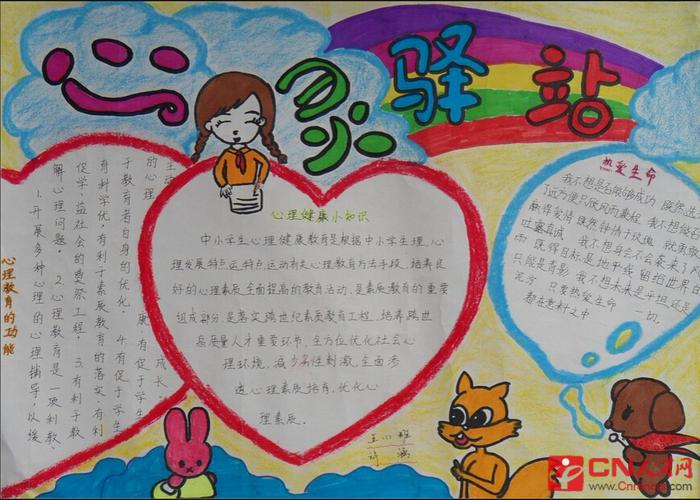 心灵驿站
心理教育的功能
1.开展多种心理的心理辅导,以缓
解心理问题。 2.心理教育是一项利教、
促学.益社会的奠祭工程. 3.有利于教
育科学优,有利于素质教育的落实.有利
于教育者自身的优化. 4.有促于学生
的心理
康.有促于学生
成长.
心理健康小知识
中小学生心理健康教育是根据中小学生理.心
理发展特点.运特点.运动有关心理教育方法手段.培养良
好的心理素质.全面提高的教育活动.是素质教育的重要
组成部分.是落实跨世纪素质教育工程.培养跨世
高质量人才重要环节.全方位优化社会心
理环境.减少劣性刺激.全面参
透心理素质培育.优化心
理素质。
热爱生命
我不想是否能够成功 既然选
了远方便只顾风雨兼程 我不想能否
赢得爱情 既然钟情于玫瑰 就勇敢
吐露真诚 我不想身后会不会袭来了
雨 既然目标是地平线 留给世界的
只能是背影 我不想未来是平坦还是
泥泞 只要热爱生命 一切.
都在意料之中
CN人才网
www.Cnrencai.com